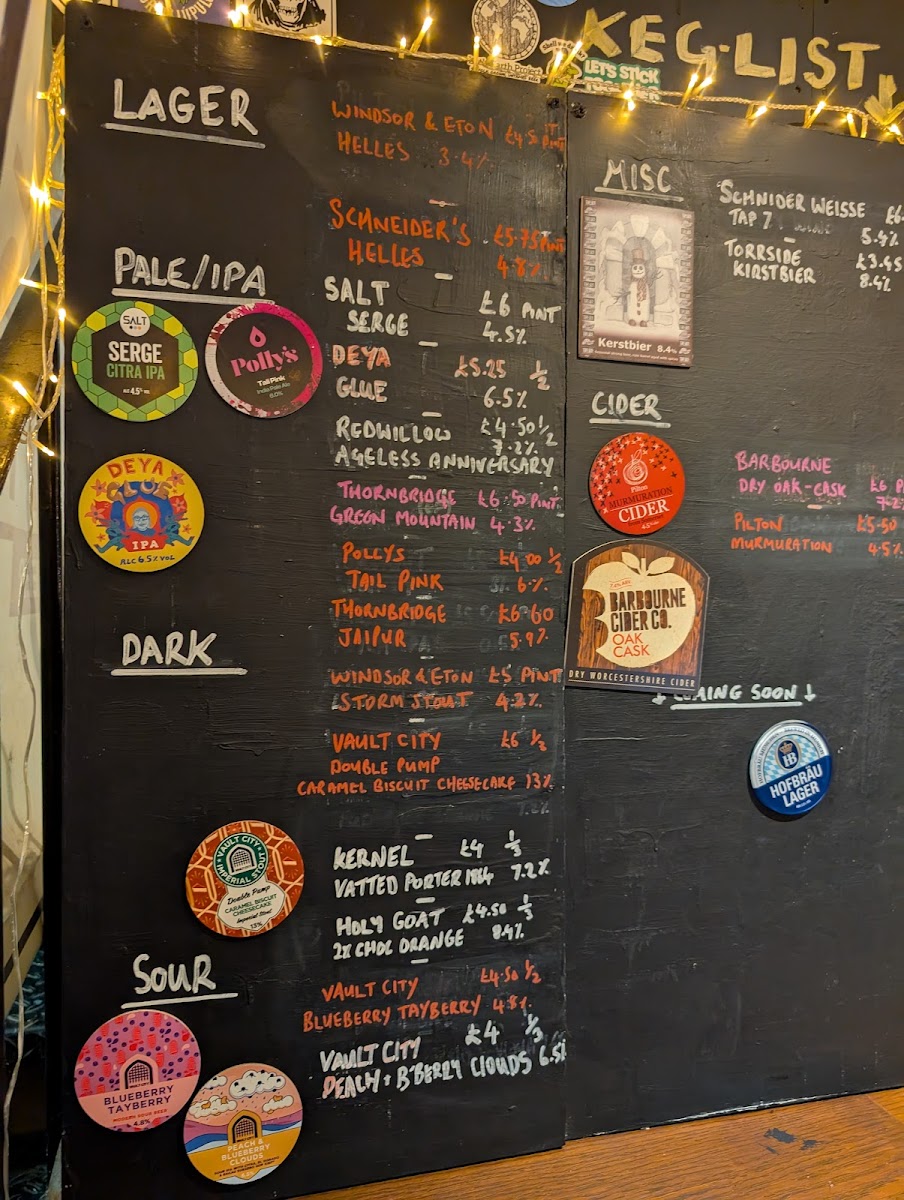 KEG-LIST
LET'S STICK
LAGER
WINDSOR & ETON
HELLES 3.4%
SCHNEIDER'S £5.75 PINT
HELLES 4.8%
PALE/IPA
SALT £6 PINT
SERGE 4.5%
DEYA £5.25 1/2
GLUE 6.5%
REDWILLOW £4.50 1/2
7.2%
AGELESS ANNIVERSARY
THORNBRIDGE £6.50 PINT
GREEN MOUNTAIN 4.3%
POLLYS £4.00 1/2
TAIL PINK 6%
THORNBRIDGE £6.60
JAIPUR 5.9%
DARK
WINDSOR & ETON £5 PINT
STORM STOUT 4.2%
VAULT CITY £6 1/3
DOUBLE PUMP
CARAMEL BISCUIT CHEESECAKE 13%
KERNEL £4 1/3
VATTED PORTER 7.2%
HOLY GOAT £4.50 1/3
2X CHOL ORANGE 8.4%
SOUR
VAULT CITY £4.50 1/2
BLUEBERRY TAYBERRY 4.8%
VAULT CITY £4 1/3
PEACH + B'BERRY CLOUDS 6.5%
SALT
SERGE
CITRA IPA
ALC 4.5% VOL
Polly's
Tail Pink
India Pale Ale
6.0%
DEYA
GLUE
IPA
ALC 6.5% VOL
VAULT CITY
IMPERIAL STOUT
Double Pump
CARAMEL BISCUIT
CHEESECAKE
Imperial Stout
13%
BLUEBERRY
TAYBERRY
MODERN SOUR BEER
4.8%
PEACH &
BLUEBERRY
CLOUDS
MISC
SCHNIDER WEISSE £6
TAP 7 5.4%
TORRSIDE £3.45
KIRSTBIER 8.4%
Kerstbier 8.4%
CIDER
BARBOURNE
DRY OAK-CASK £6 P
7.2%
PILTON £5.50
MURMURATION 4.5%
Pilton
MURMURATION
CIDER
BARBOURNE
CIDER CO.
OAK
CASK
DRY WORCESTERSHIRE CIDER
↓ COMING SOON ↓
HB
HOFBRÄU
LAGER